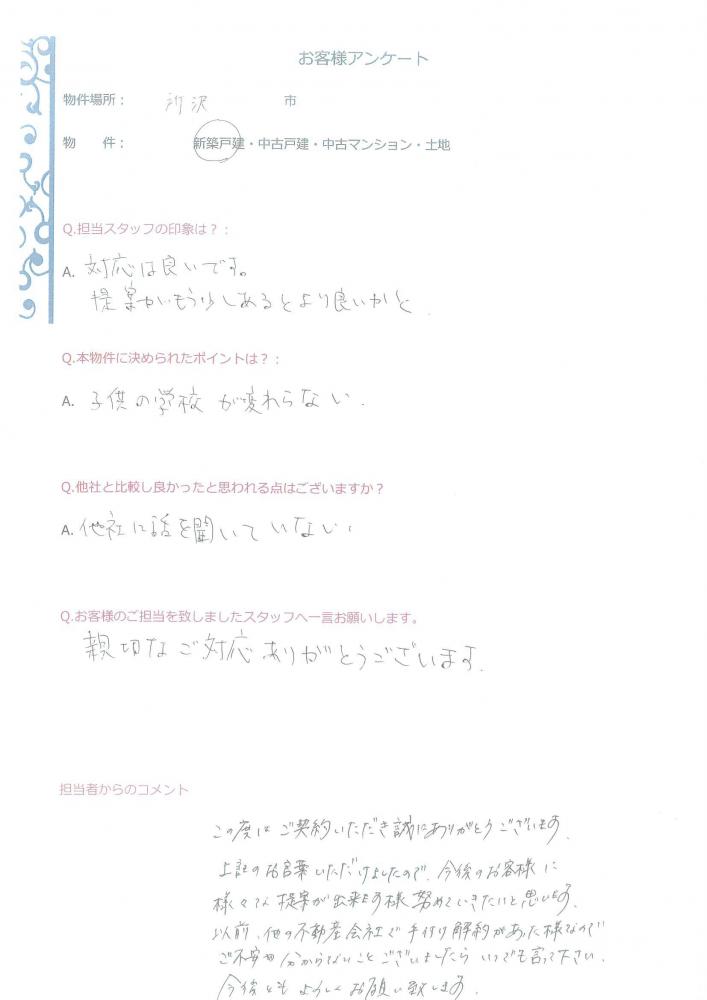 お客様アンケート
物件場所： 所沢 市
物　　件： 新築戸建・中古戸建・中古マンション・土地
Q.担当スタッフの印象は？：
A. 対応は良いです。
提案がもう少しあるとより良いかと.
Q.本物件に決められたポイントは？：
A. 子供の学校が変わらない.
Q.他社と比較し良かったと思われる点はございますか？
A. 他社に話を聞いていない.
Q.お客様のご担当を致しましたスタッフへ一言お願いします。
親切なご対応ありがとうございます.
担当者からのコメント
この度は ご契約いただき誠にありがとうございます.
上記のお言葉いただけましたので、今後のお客様に
様々な提案が出来ます様努めていきたいと思います.
以前、他の不動産会社で手付け解約があった様なので
ご不安や分からないことございましたらいつでも言って下さい.
今後ともよろしくお願い致します.